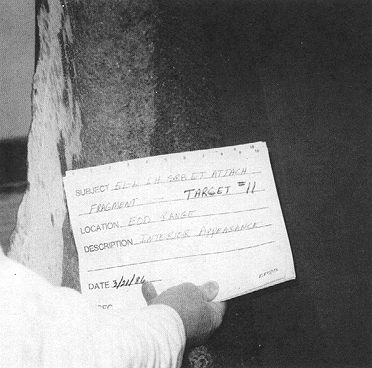 SUBJECT 51-L LH SRB ET ATTACH
FRAGMENT TARGET #11
LOCATION EOD RANGE
DESCRIPTION INTERIOR APPEARANCE
DATE 3/21/86